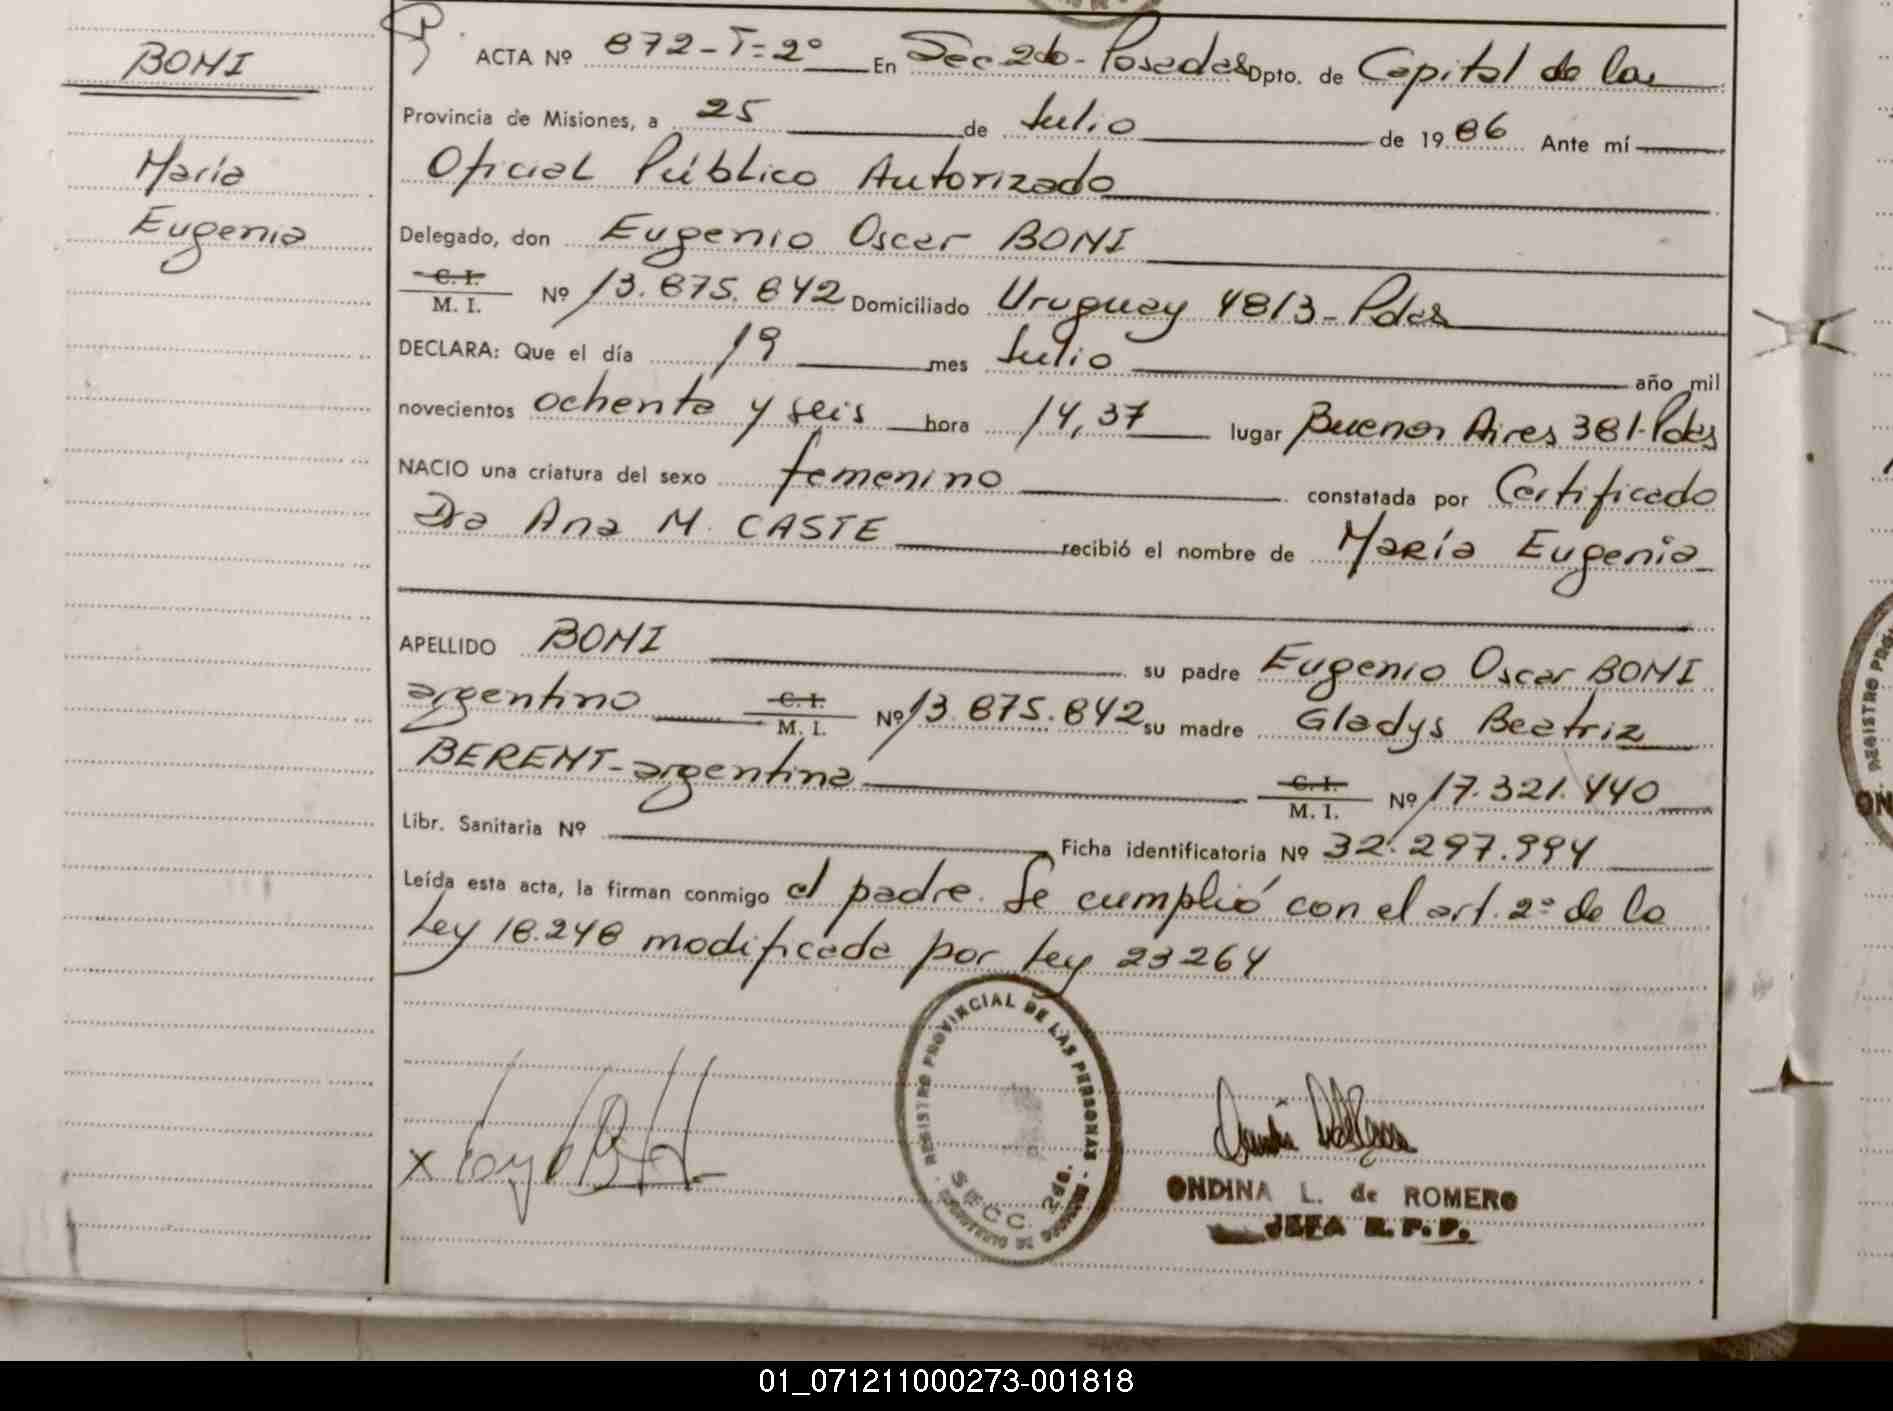 BONI
María
Eugenia
ACTA Nº 872-T=2º En Sec 2da - Posadas Dpto. de Capital de las
Provincia de Misiones, a 25 de Julio de 1986 Ante mí
Oficial Público Autorizado
Delegado, don Eugenio Oscar BONI
C. I.
M. I. Nº 13.875.842 Domiciliado Uruguay 4813 - Pdas
DECLARA: Que el día 19 mes Julio año mil
novecientos ochenta y seis hora 14,37 lugar Buenos Aires 381-Pdas
NACIO una criatura del sexo femenino constatada por Certificado
Dra Ana M. CASTE recibió el nombre de María Eugenia
APELLIDO BONI su padre Eugenio Oscar BONI
argentino C. I. M. I. Nº 13.875.842 su madre Gladys Beatriz
BERENT - argentina C. I. M. I. Nº 17.321.440
Libr. Sanitaria Nº Ficha identificatoria Nº 32.297.994
Leída esta acta, la firman conmigo el padre. Se cumplió con el art. 2º de la
Ley 18.248 modificada por Ley 23264
REGISTRO PROVINCIAL DE LAS PERSONAS
SECC. 2da.
ONDINA L. de ROMERO
JEFA R. P. P.
REGISTRO PRO
ON
01_071211000273-001818